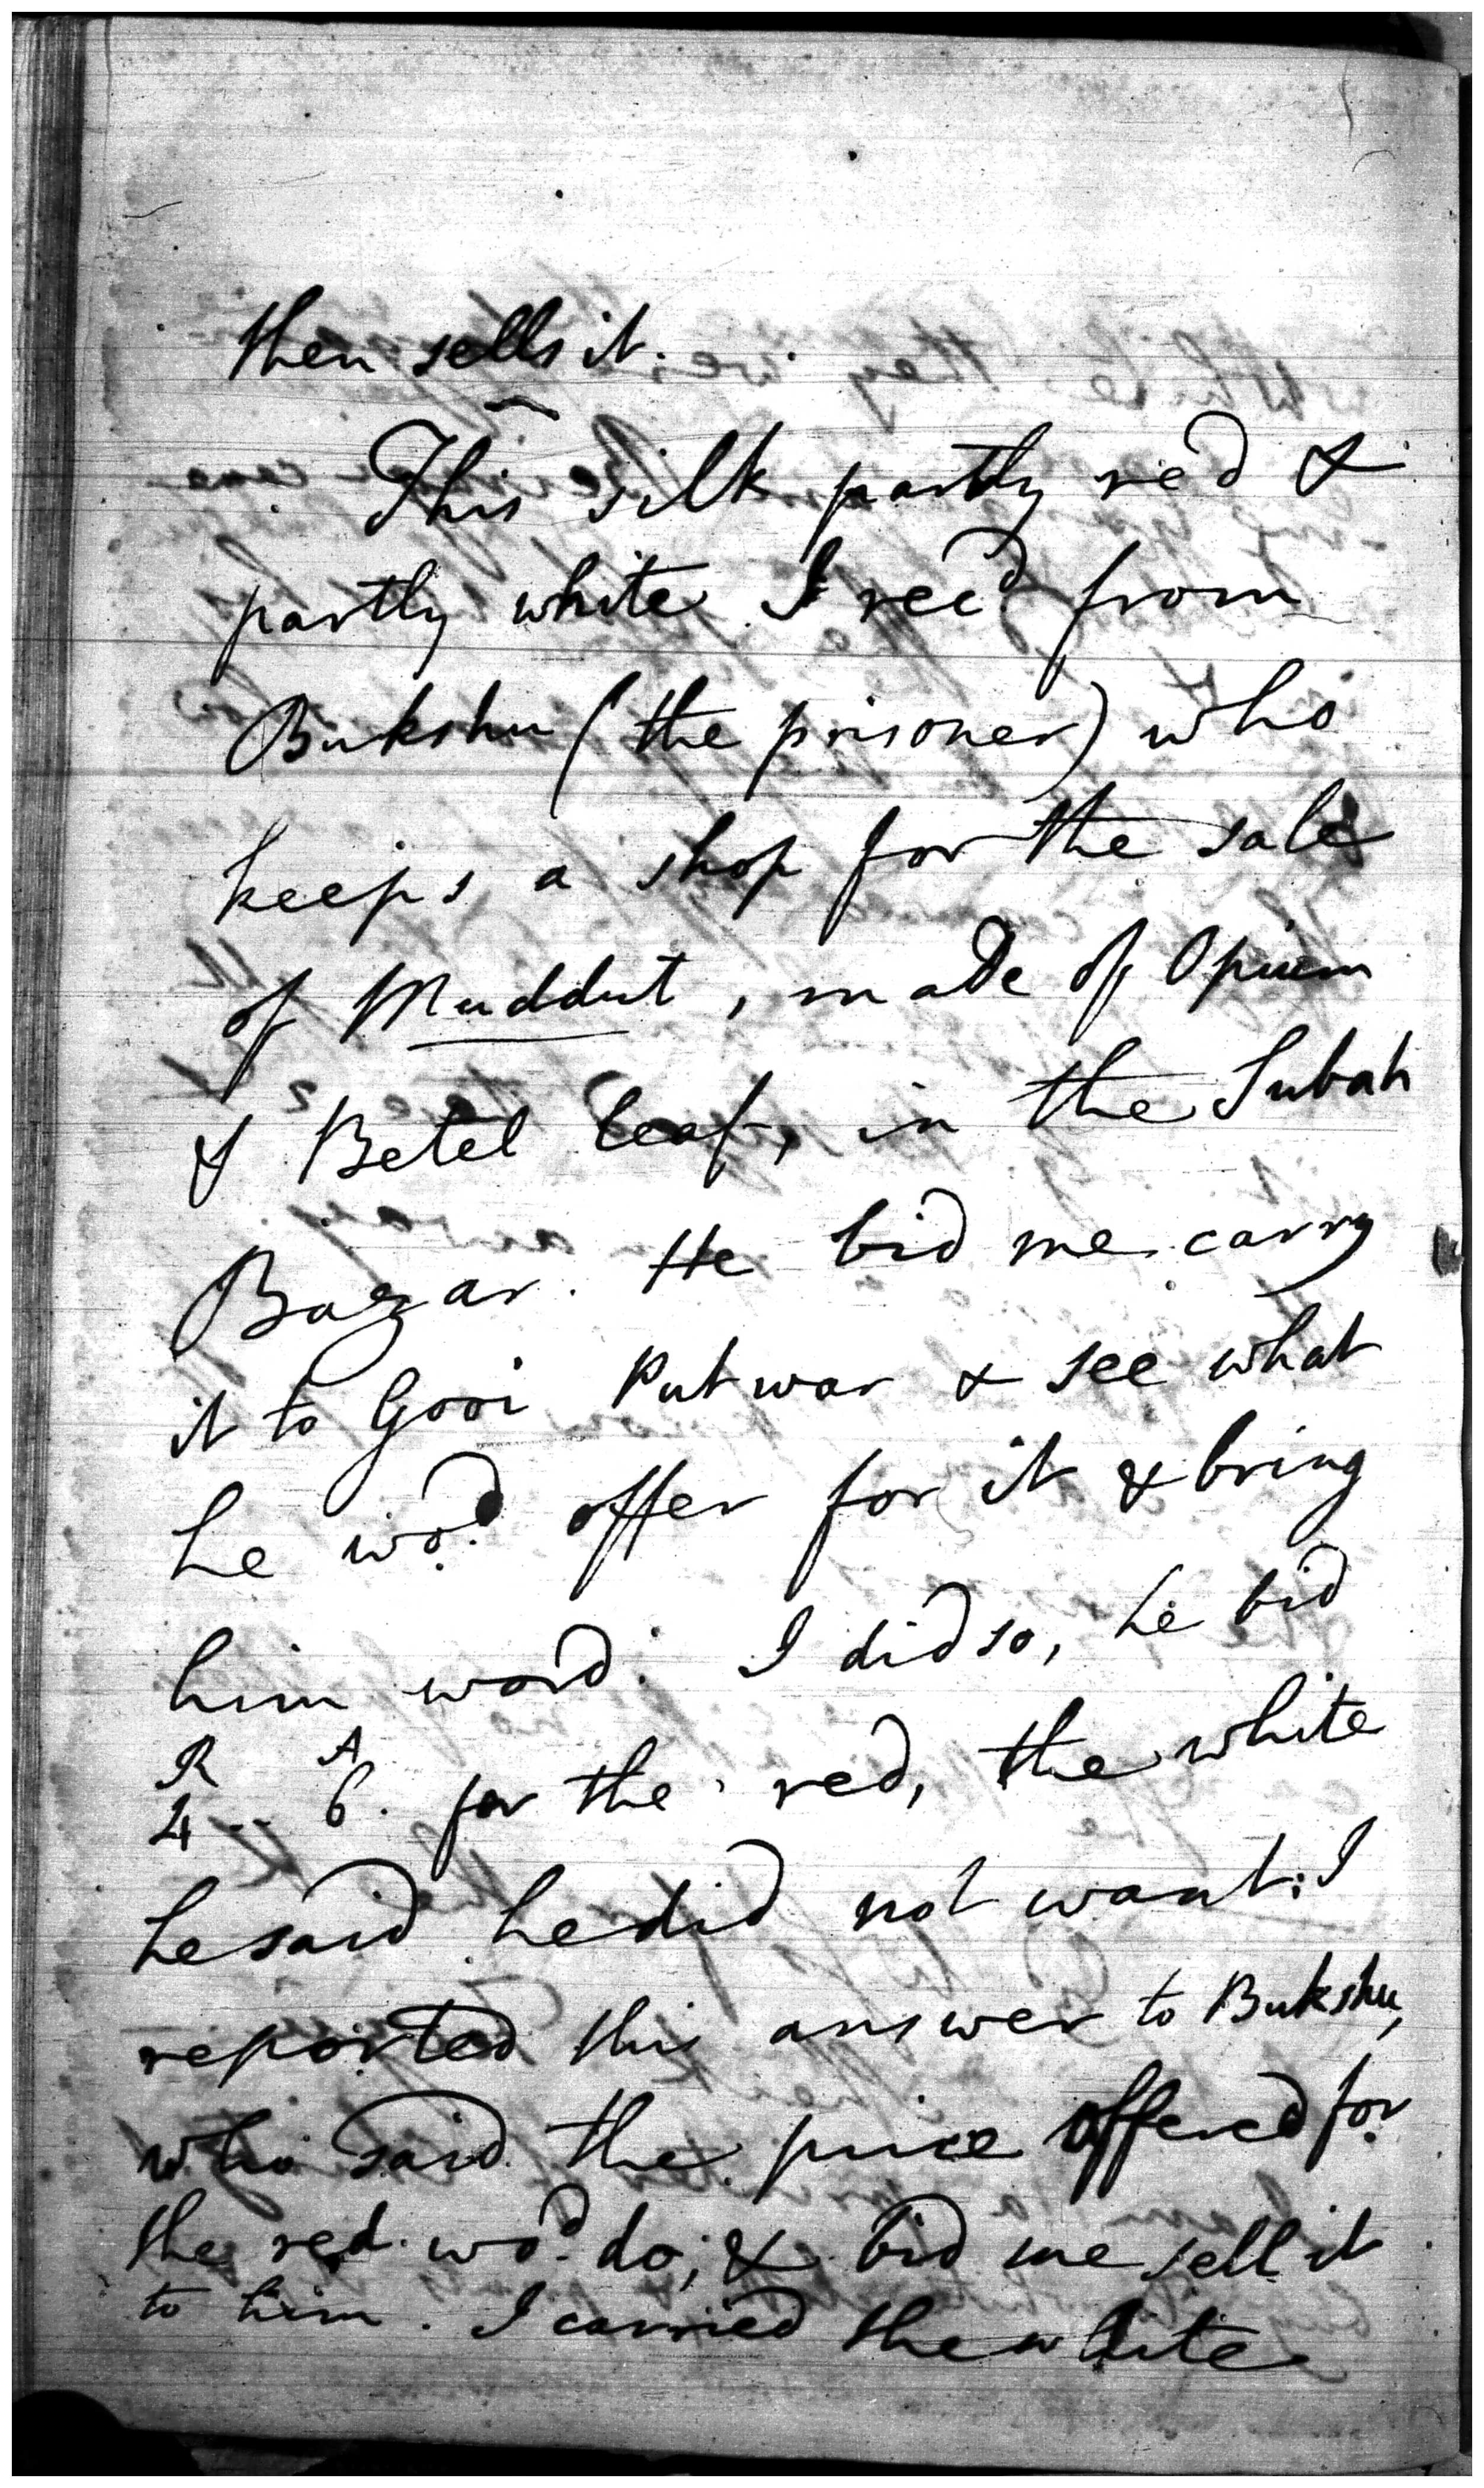 then sells it.
This silk partly red &
partly white I recd from
Bukshu (the prisoner) who
keeps a shop for the sale
of Muddut, made of Opium
& Betel leaf, in the Subah
Bazar. He bid me carry
it to Goor Putwar & see what
he wod. offer for it & bring
him word. I did so, he bid
R A
4 .. 6. for the red, the white
he said he did not want; I
reported this answer to Bukshu,
who said the price offered for
the red wod. do; & bid me sell it
to him. I carried the white